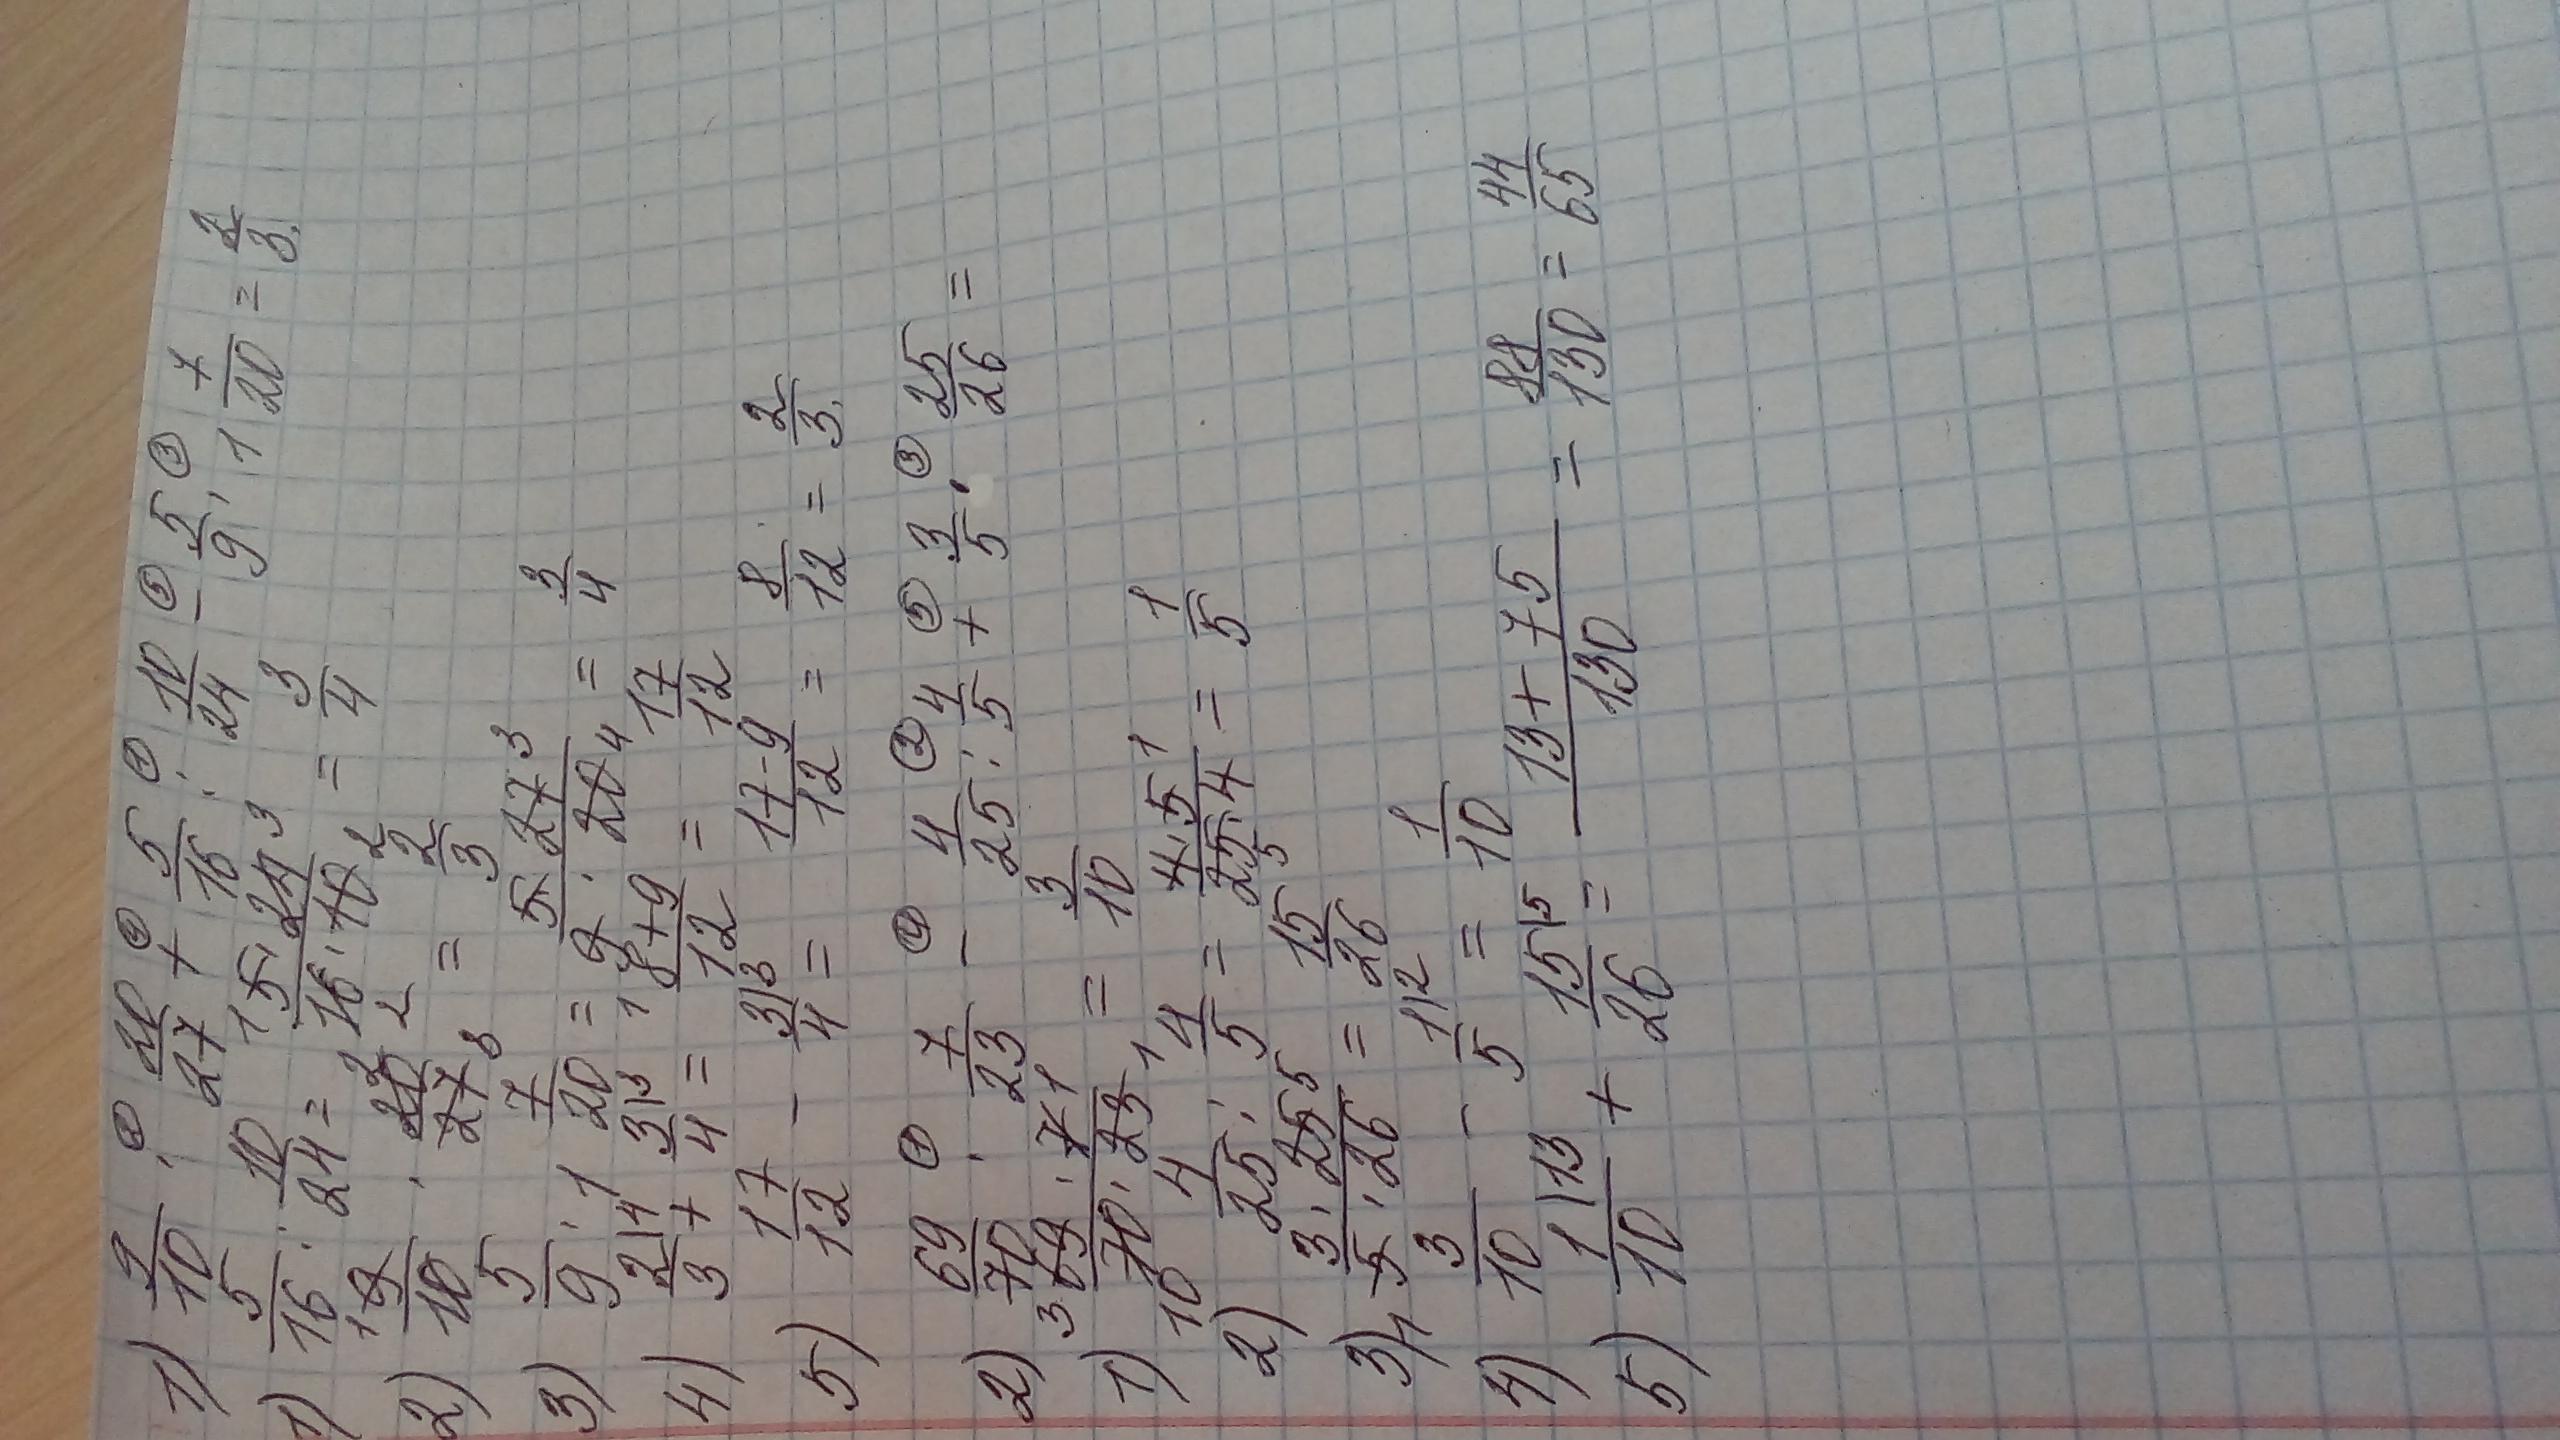 1) 9/10 · 20/27 + 5/16 : 10/24 - 5/9 : 1 7/20 = 2/3.
1) 5/16 : 10/24 = 5·24/16·10 = 3/4
2) 9/10 · 20/27 = 2/3
3) 5/9 : 1 7/20 = 5·27/9·20 = 3/4
4) 2/3 + 3/4 = 8+9/12 = 17/12
5) 17/12 - 3/4 = 17-9/12 = 8/12 = 2/3.
2) 69/70 · 7/23 - 4/25 : 4/5 + 3/5 · 25/26 =
1) 69·7/70·23 = 3/10
2) 4/25 : 4/5 = 4·5/25·4 = 1/5
3) 3·25/5·26 = 15/26
4) 3/10 - 1/5 = 1/10
5) 1/10 + 15/26 = 13+75/130 = 88/130 = 44/65